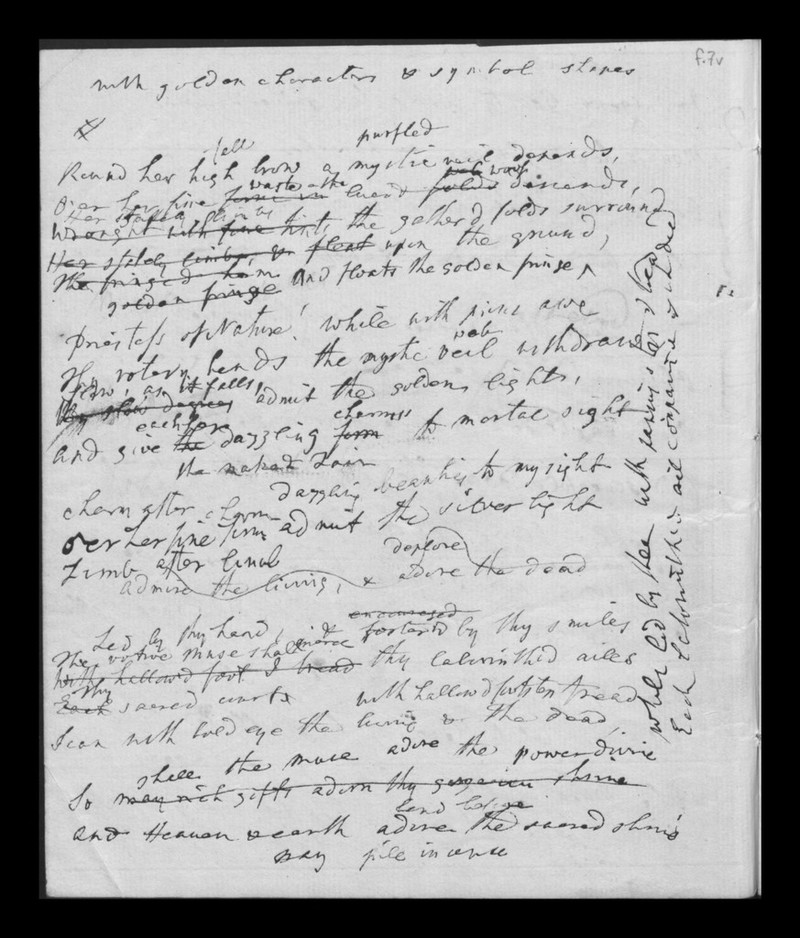 f.7v
with golden characters & symbol shapes
fell purfled
Round her high brow a mystic veil depends,
waste the web woof
O'er her fine form in lucid folds descends,
Her stately limbs
Wrought with fine tints the gather'd folds surround
Her stately limbs, & float upon the ground,
The fringed hem And floats the golden fringe
golden fringe
Priestess of Nature! while with pious awe
web
If votary hands the mystic veil withdraw
Slow, as it falls,
By slow degrees admit the golden lights,
each fore charms
And give the dazzling form to mortal sight
the naked Fair
dazzling beauties to my sight
charm after charm
O'er her fine form admit the silver light
Limb after limb deplore
admire the living, & adore the dead
encouraged
Led by thy hand, & foster'd by thy smiles
The votive muse shall pierce
With hallow'd foot I tread thy labyrinthd ailes
Thy
Each sacred courts with hallow'd footstep tread
Scan with bold eye the living & the dead,
shall the muse adore the power divine
So may rich gifts adorn thy shrine
lend
And Heaven & earth adore the sacred shrine
may pile incense
while led by thee with
Each Labyrinthd ail